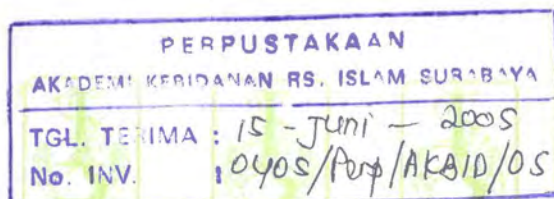 PERPUSTAKAAN
AKADEMI KEBIDANAN RS. ISLAM SURABAYA
TGL. TERIMA : 15 - Juni - 2005
No. INV. : 0405/Perp/AKBID/05